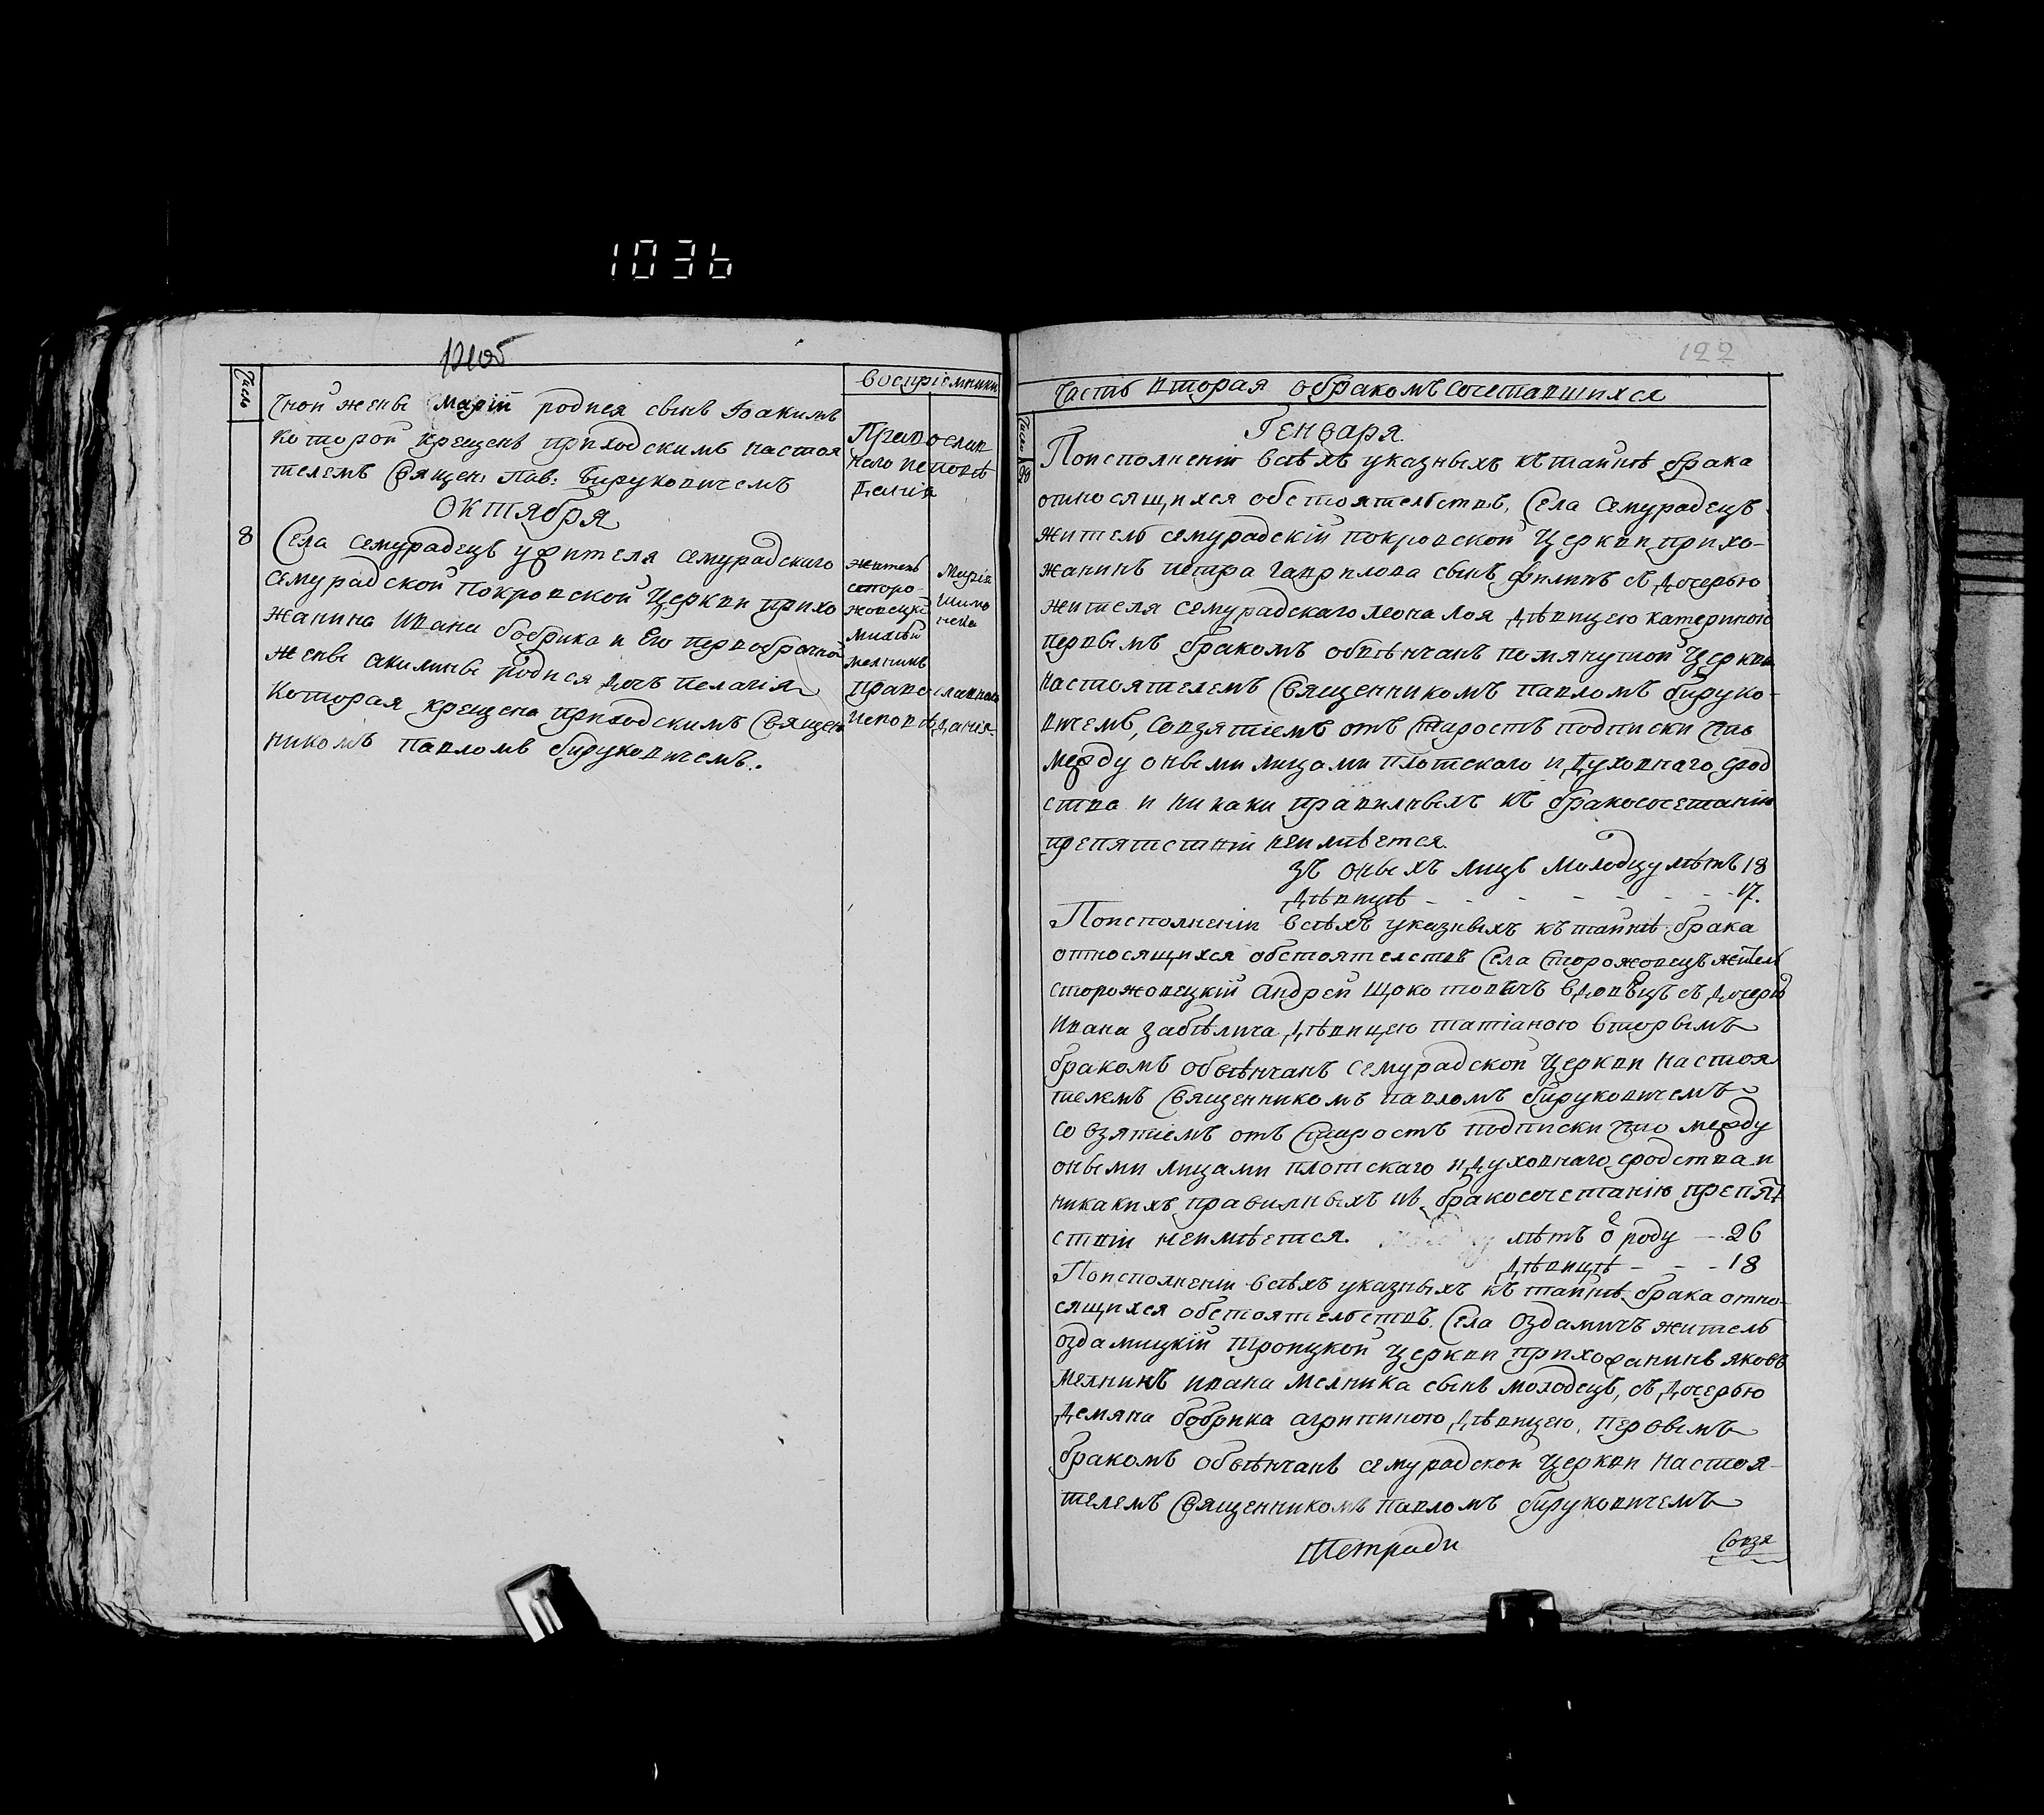 1036
Число
воспріемники
чной женѣ Маріи родися сынъ Іоакимъ
которой крещенъ приходскимъ настоя
телемъ Свящеn: Пав: Бируковичемъ
Православ
наго исповѣ
данія
Октября
8
Села Семурадецъ жителя семурадскаго
семурадской покровской Церкви прихо
жанина Ивана бобрика и Его первобрачной
женѣ акилинѣ родися дочь пелагія
Которая крещена приходскимъ Священ
никомъ павломъ бируковичемъ.
житель
сторо-
жовецкій
Михей
мелникъ
православнаго
исповѣданія
Марія
122
Часть вторая о бракомъ сочетавшихся
Число
Генваря
20
По исполненіи всѣхъ указныхъ къ тайнѣ брака
относящихся обстоятелствъ, Села Семурадецъ
житель семурадскій покровской Церкви прихо-
жанинъ петра гаврилова сынъ филипъ съ дочерью
жителя семурадскаго дѣвицею катериною
первымъ бракомъ обвѣнчанъ помянутой Церкви
настоятелемъ Священникомъ павломъ бируко-
вичемъ, со взятіемъ отъ Старостъ подписки что
между оными лицами плотскаго и духовнаго срод
ства и никаки правилныхъ къ бракосочетанію
препятствій неимѣется.
зъ оныхъ лицъ молодцу лѣтъ 18
дѣвицѣ - - - - - - 17.
По исполненіи всѣхъ указныхъ къ тайнѣ брака
относящихся обстоятелствъ Села Сторожовецъ житель
сторожовецкій Андрей Щокотовичъ вдовецъ съ дочерю
ивана забѣлича дѣвицею татіаною вторымъ
бракомъ обвѣнчанъ семурадской Церкви настоя
телемъ Священникомъ павломъ бируковичемъ
со взятіемъ отъ Старостъ подписки что между
оными лицами плотскаго и духовнаго сродства и
никакихъ правилныхъ къ бракосочетанію препят
ствій неимѣется. лѣтъ о роду - 26
дѣвицѣ - - - 18
По исполненіи всѣхъ указныхъ къ тайнѣ брака отно-
сящихся обстоятельствъ. Села Оздамичъ житель
оздамицкій троицкой Церкви прихожанинъ яковъ
мелникъ ивана мелника сынъ молодецъ, съ дочерью
демяна бобрика агрипиною дѣвицею, первымъ
бракомъ обвѣнчанъ семурадской Церкви настоя-
телемъ Священникомъ павломъ бируковичемъ
Тетради
Совзя